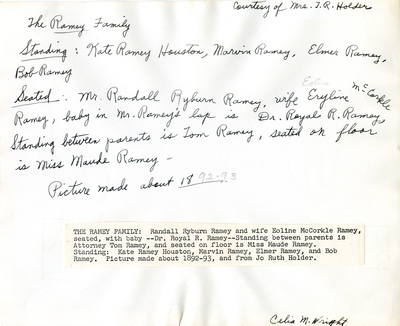 Courtesy of Mrs. T. R. Holder
The Ramey Family
Standing : Kate Ramey Houston, Marvin Ramey, Elmer Ramey,
Bob Ramey
Eoline
Seated : Mr. Randall Ryburn Ramey, wife Eryline McCorkle
Ramey, baby in Mr. Ramey's lap is Dr. Royal R. Ramey,
Standing between parents is Tom Ramey, seated on floor
is Miss Maude Ramey -
Picture made about 1892-93
THE RAMEY FAMILY: Randall Ryburn Ramey and wife Eoline McCorkle Ramey,
seated, with baby --Dr. Royal R. Ramey--Standing between parents is
Attorney Tom Ramey, and seated on floor is Miss Maude Ramey.
Standing: Kate Ramey Houston, Marvin Ramey, Elmer Ramey, and Bob
Ramey. Picture made about 1892-93, and from Jo Ruth Holder.
Celia M. Wright